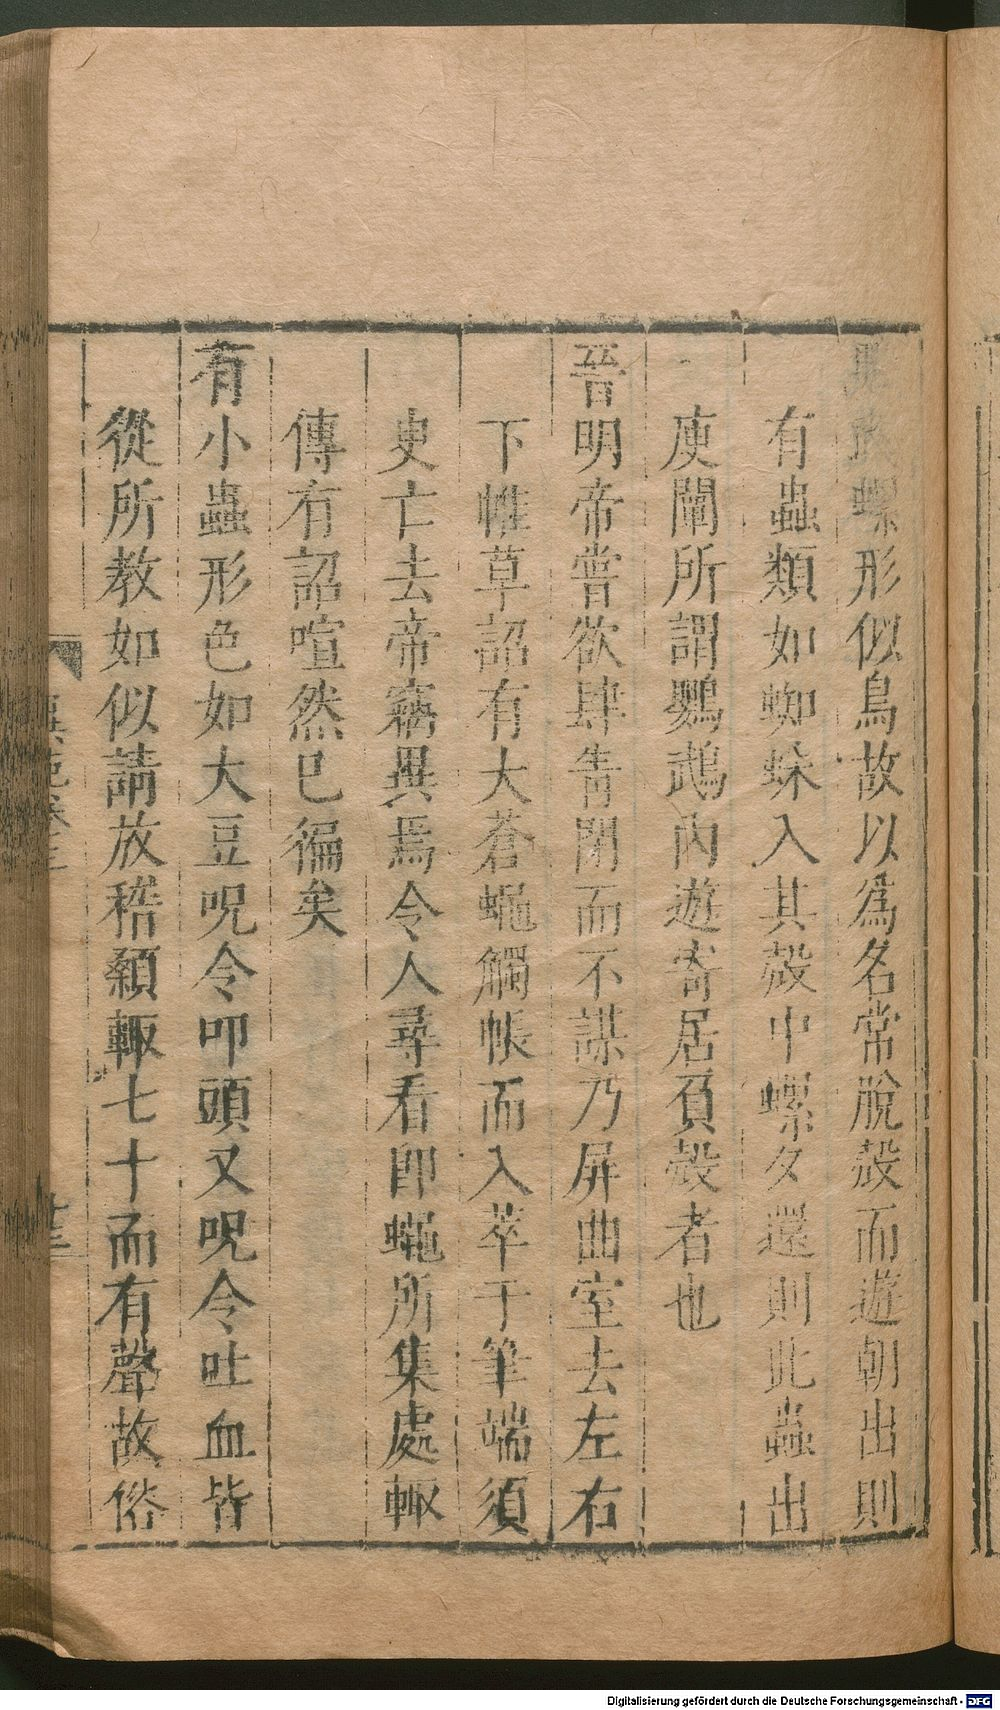 鸚鵡螺形似鳥故以為名常脫殼而遊朝出則
有蟲類如蜘蛛入其殼中螺夕還則此蟲出
庾闡所謂鸚鵡內遊寄居負殼者也
晉明帝嘗欲肆眚閉而不謀乃屏曲室去左右
下帷草詔有大蒼蠅觸帳而入萃于筆端須
臾亡去帝竊異焉令人尋看即蠅所集處輙
傳有詔喧然已徧矣
有小蟲形色如大豆呪令叩頭又呪令吐血皆
從所教如似請放稽顙輙七十而有聲故俗
異苑卷三
廿三
Digitalisierung gefördert durch die Deutsche Forschungsgemeinschaft - DFG